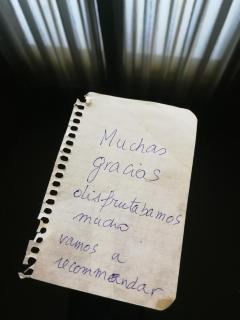 Muchas
gracias
disfrutabamos
mucho.
vamos a
recommandar